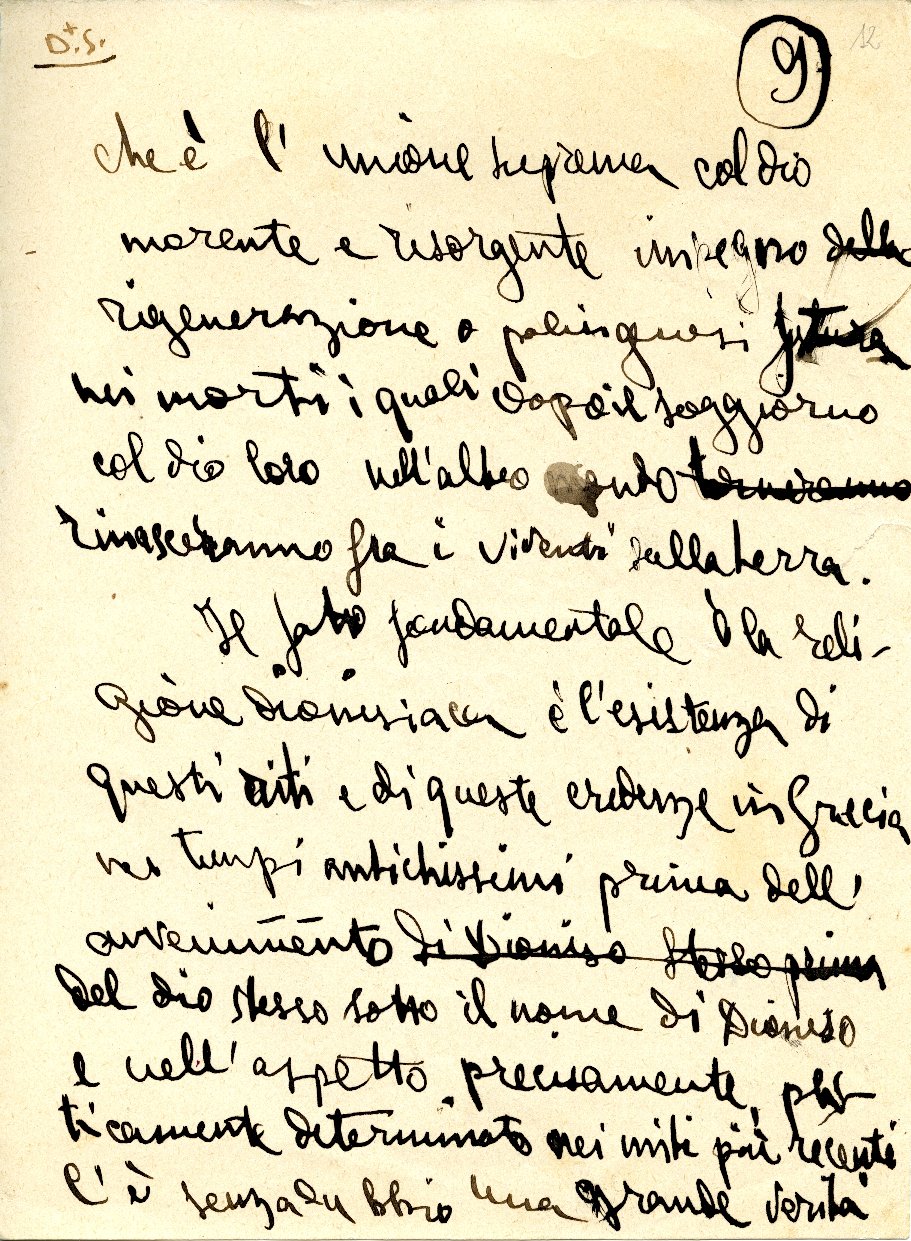 D+.S.
9
12
che è l' unione suprema col dio
morente e risorgente impegno della
rigenerazione o palingenesi futura
nei morti i quali dopo il soggiorno
col dio loro nell'altro mondo torneranno
rinasceranno fra i viventi sulla terra.
Il fatto fondamentale è la reli-
gione dionisiaca è l'esistenza di
questi riti e di queste credenze in Grecia
nei tempi antichissimi prima dell'
avvenimento di Dioniso stesso prima
del dio stesso sotto il nome di Dioniso
e nell'aspetto precisamente, plas-
ticamente determinato nei miti più recenti
C'è senza dubbio una grande verità